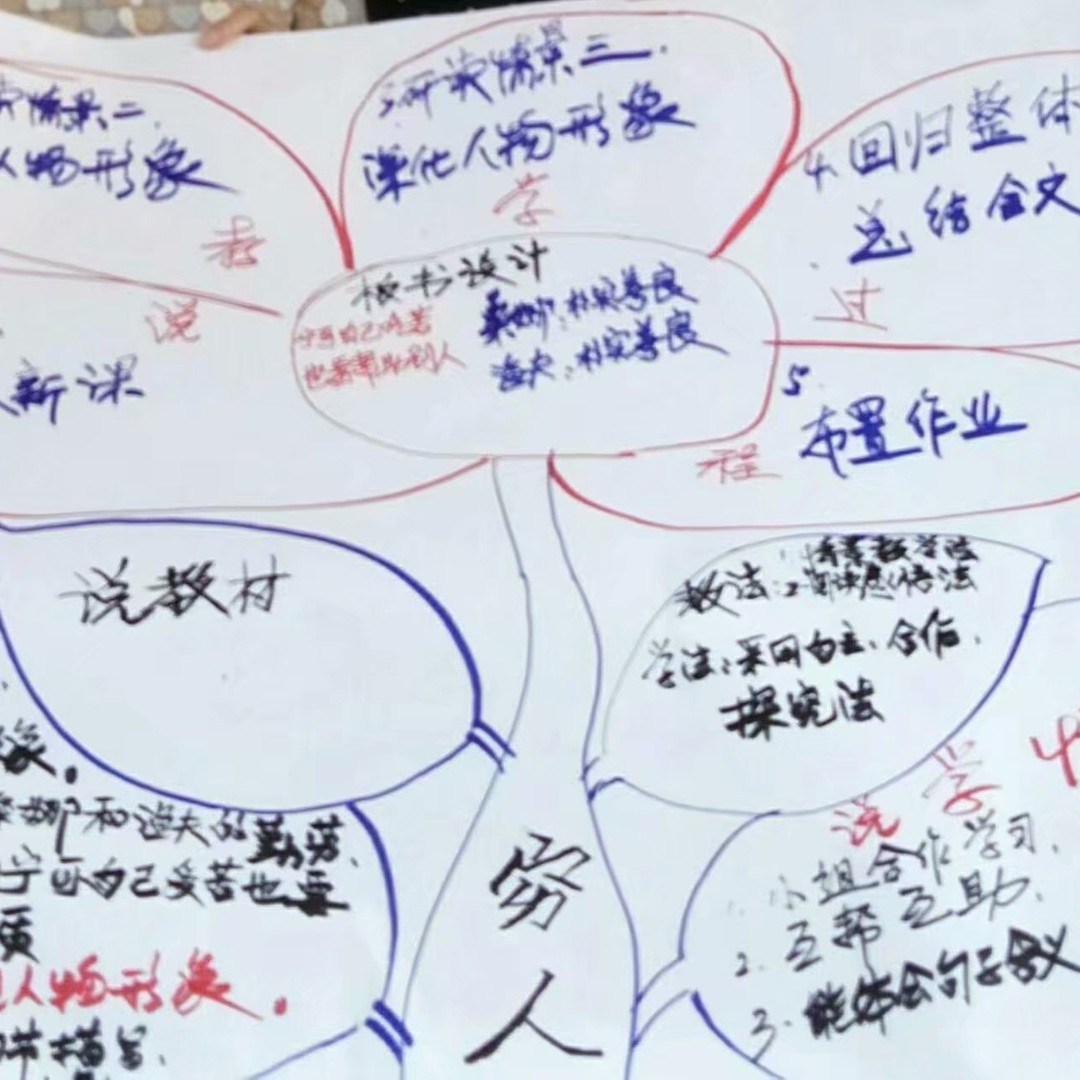 情景二.
人物形象
研读情景三.
深化人物形象
学
4.回归整体
总结全文
考
说
过
板书设计
宁可自己吃苦
也要帮助别人
桑娜:朴实善良
渔夫:朴实善良
新课
5
布置作业
程
说教材
教法:1情景教学法
2
学法:采用自主、合作、
探究法
象。
娜和渔夫的勤劳、
宁可自己受苦也要
质
人物形象。
节描写.
穷
人
说学
1.小组合作学习、
2.互帮互助、
3.能体会句子含义